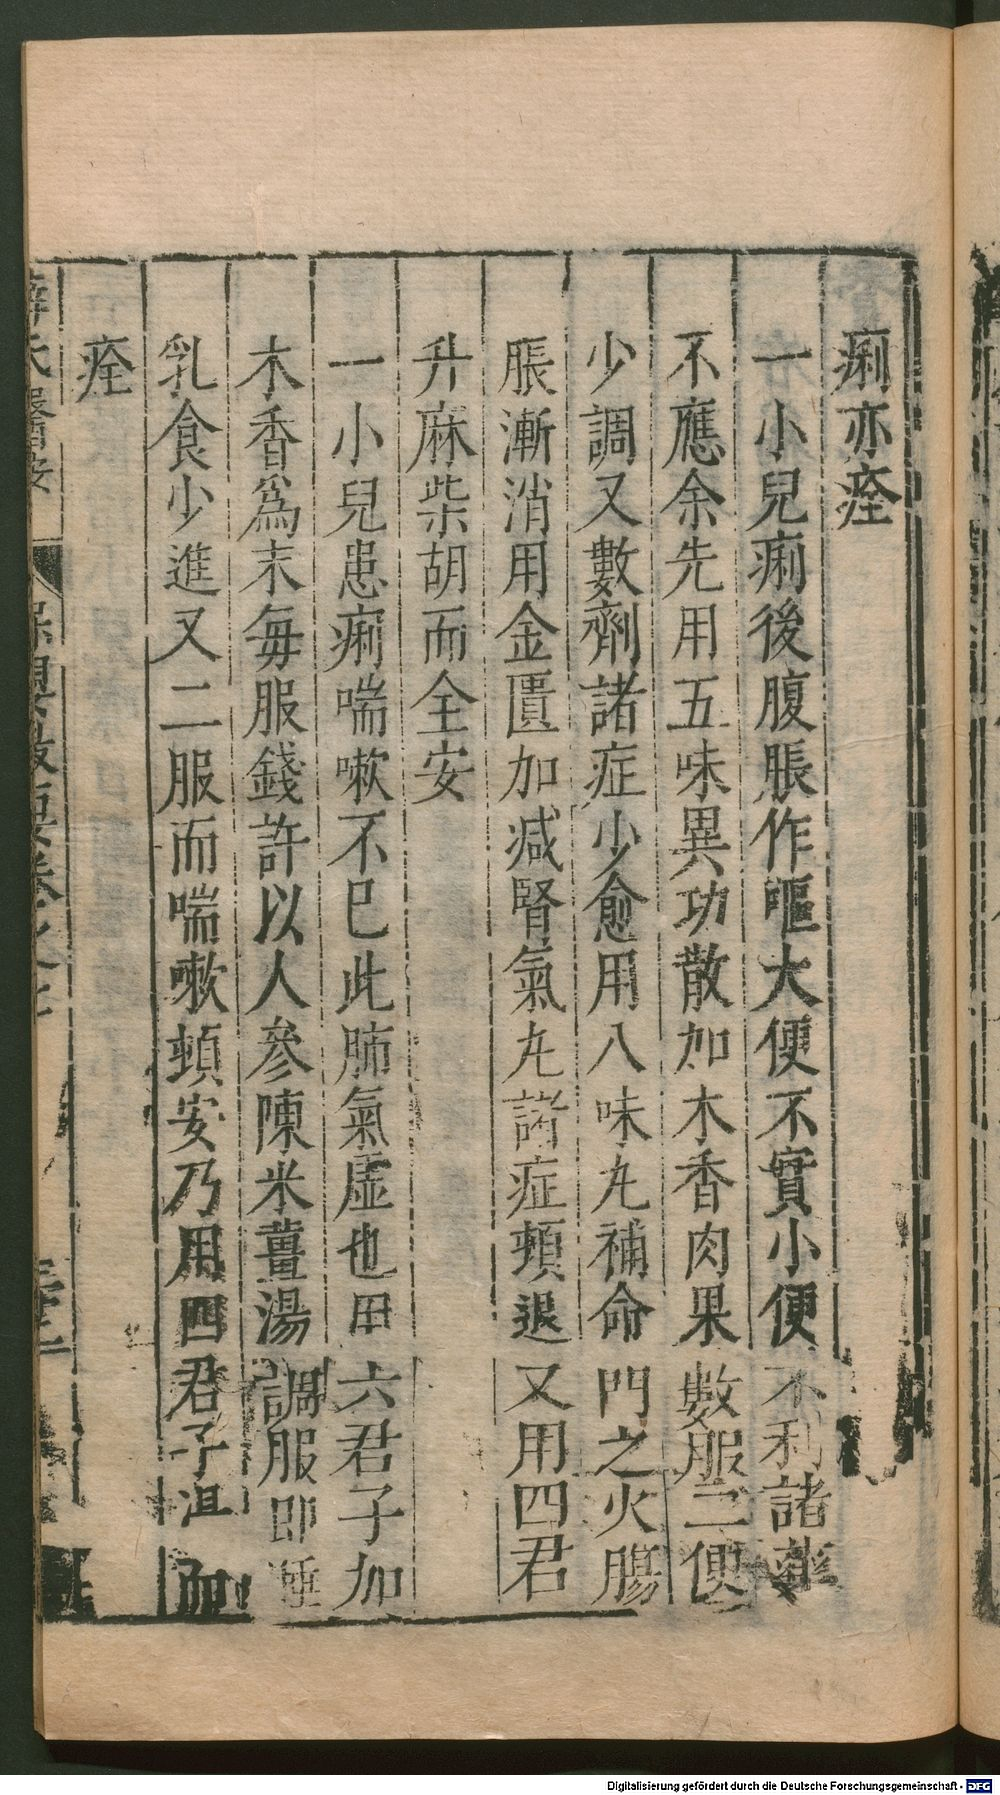 痢亦痊
一小兒痢後腹脹作嘔大便不實小便不利諸藥
不應余先用五味異功散加木香肉果數服二便
少調又數劑諸症少愈用八味丸補命門之火腸
脹漸消用金匱加減腎氣丸諸症頓退又用四君
升麻柴胡而全安
一小兒患痢喘嗽不已此肺氣虛也用六君子加
木香爲末每服錢許以人參陳米薑湯調服即睡
乳食少進又二服而喘嗽頓安乃用四君子湯而
痊
薛氏醫按 保嬰撮要卷之七
Digitalisierung gefördert durch die Deutsche Forschungsgemeinschaft - DFG